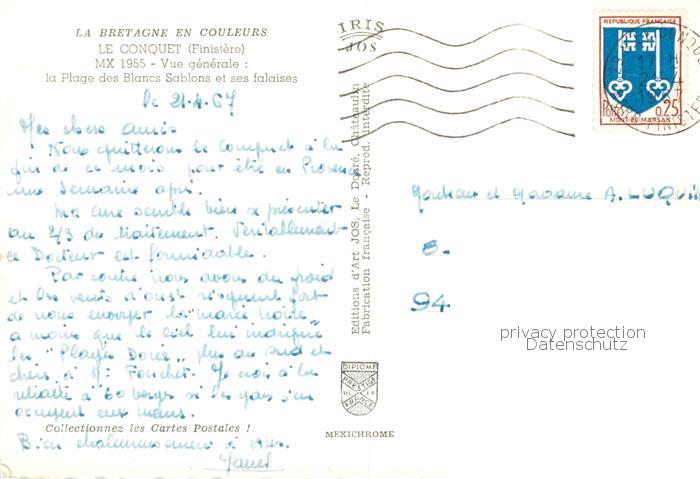 LA BRETAGNE EN COULEURS
LE CONQUET (Finistère)
MX 1955 - Vue générale :
la Plage des Blancs Sablons et ses falaises
IRIS
JOS
REPUBLIQUE FRANÇAISE
POSTES 0,25
MONT-DE-MARSAN
Le 21.4.67
Mes chers amis
Nous quitterons le Conquet à la
fin de ce mois pour être en Provence
une semaine après.
Ma cure semble bien se présenter
au 2/3 de traitement. Véritablement
ce Docteur est formidable.
Par contre nous avons du froid
et les vents d'ouest risquent fort
de nous envoyer la "marée noire"
a moins que le ciel lui indique
les "Plages Dorées" plus au sud et
chers à Mr Fouchet. Je vois à la
retraite à 60 berges si les gars s'en
occupent eux mêmes.
Bien chaleureusement à vous.
Collectionnez les Cartes Postales !
Editions d'Art JOS, Le Doaré, Châteaulin
Fabrication française - Reprod. interdite
DIPLOME
PRESTIGE
DE LA
FRANCE
MEXICHROME
Monsieur et Madame A. LUQUI
8.
94
privacy protection
Datenschutz